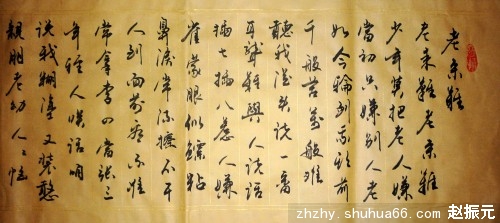 老来难
老来难老来难
少年莫把老人嫌
当初只嫌别人老
如今轮到我头前
千般苦万般难
听我从头说一番
耳聋难与人说话
插七插八惹人嫌
雀蒙眼似鳔粘
鼻泪常流擦不干
人到面前看不准
常拿李四当张三
年轻人笑话咱
说我糊涂又装憨
亲朋老幼人人恼
zhzhy.shuhua66.com 赵振元